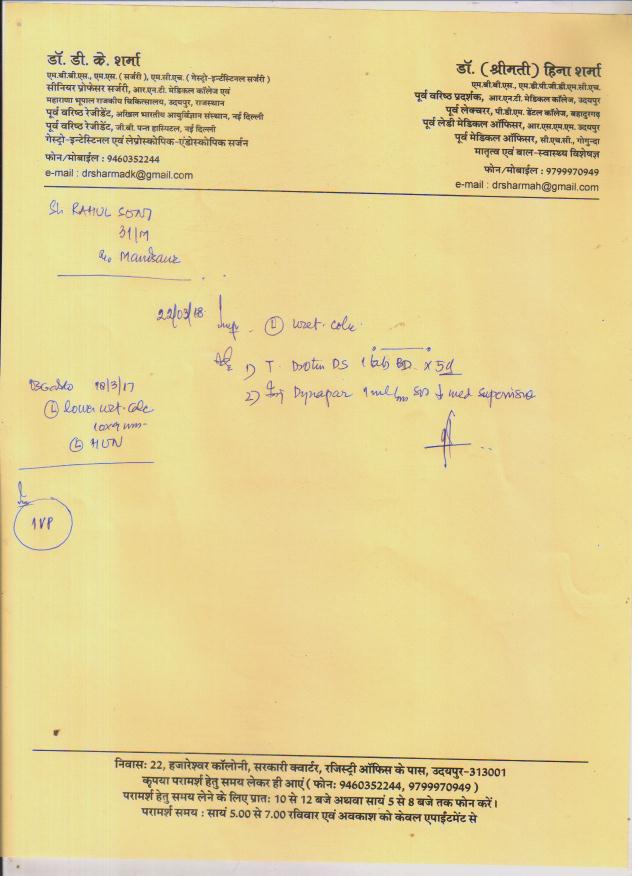 डॉ. डी. के. शर्मा
एम.बी.बी.एस., एम.एस. ( सर्जरी ), एम.सी.एच. ( गेस्ट्रो-इन्टेस्टिनल सर्जरी )
सीनियर प्रोफेसर सर्जरी, आर.एन.टी. मेडिकल कॉलेज एवं
महाराणा भूपाल राजकीय चिकित्सालय, उदयपुर, राजस्थान
पूर्व वरिष्ठ रेजीडेंट, अखिल भारतीय आयुर्विज्ञान संस्थान, नई दिल्ली
पूर्व वरिष्ठ रेजीडेंट, जी.बी. पन्त हास्पिटल, नई दिल्ली
गेस्ट्रो-इन्टेस्टिनल एवं लेप्रोस्कोपिक-एंडोस्कोपिक सर्जन
फोन/मोबाईल : 9460352244
e-mail : drsharmadk@gmail.com
डॉ. (श्रीमती) हिना शर्मा
एम.बी.बी.एस., एम.डी.पी.जी.डी.एम.सी.एच.
पूर्व वरिष्ठ प्रदर्शक, आर.एन.टी. मेडिकल कॉलेज, उदयपुर
पूर्व लेक्चरर, पी.डी.एम. डेंटल कॉलेज, बहादुरगढ़
पूर्व लेडी मेडिकल ऑफिसर, आर.एस.एम.एम. उदयपुर
पूर्व मेडिकल ऑफिसर, सी.एच.सी., गोगुन्दा
मातृत्व एवं बाल-स्वास्थ्य विशेषज्ञ
फोन/मोबाईल : 9799970949
e-mail : drsharmah@gmail.com
Sh. RAHUL SONI
31/M
R/o Mandsaur
22/03/18 Imp. Ⓛ uret. colic
Adv 1) T. Drotin DS 1 tab BD x 5d
2) Inj Dynapar 1ml/im med supervision
18/3/17
Ⓛ lower uret. calc
10x9 mm
Ⓛ HUN
IVP
निवास: 22, हजारेश्वर कॉलोनी, सरकारी क्वार्टर, रजिस्ट्री ऑफिस के पास, उदयपुर-313001
कृपया परामर्श हेतु समय लेकर ही आएं ( फोन: 9460352244, 9799970949 )
परामर्श हेतु समय लेने के लिए प्रात: 10 से 12 बजे अथवा सायं 5 से 8 बजे तक फोन करें।
परामर्श समय : सायं 5.00 से 7.00 रविवार एवं अवकाश को केवल एपाईंटमेंट से